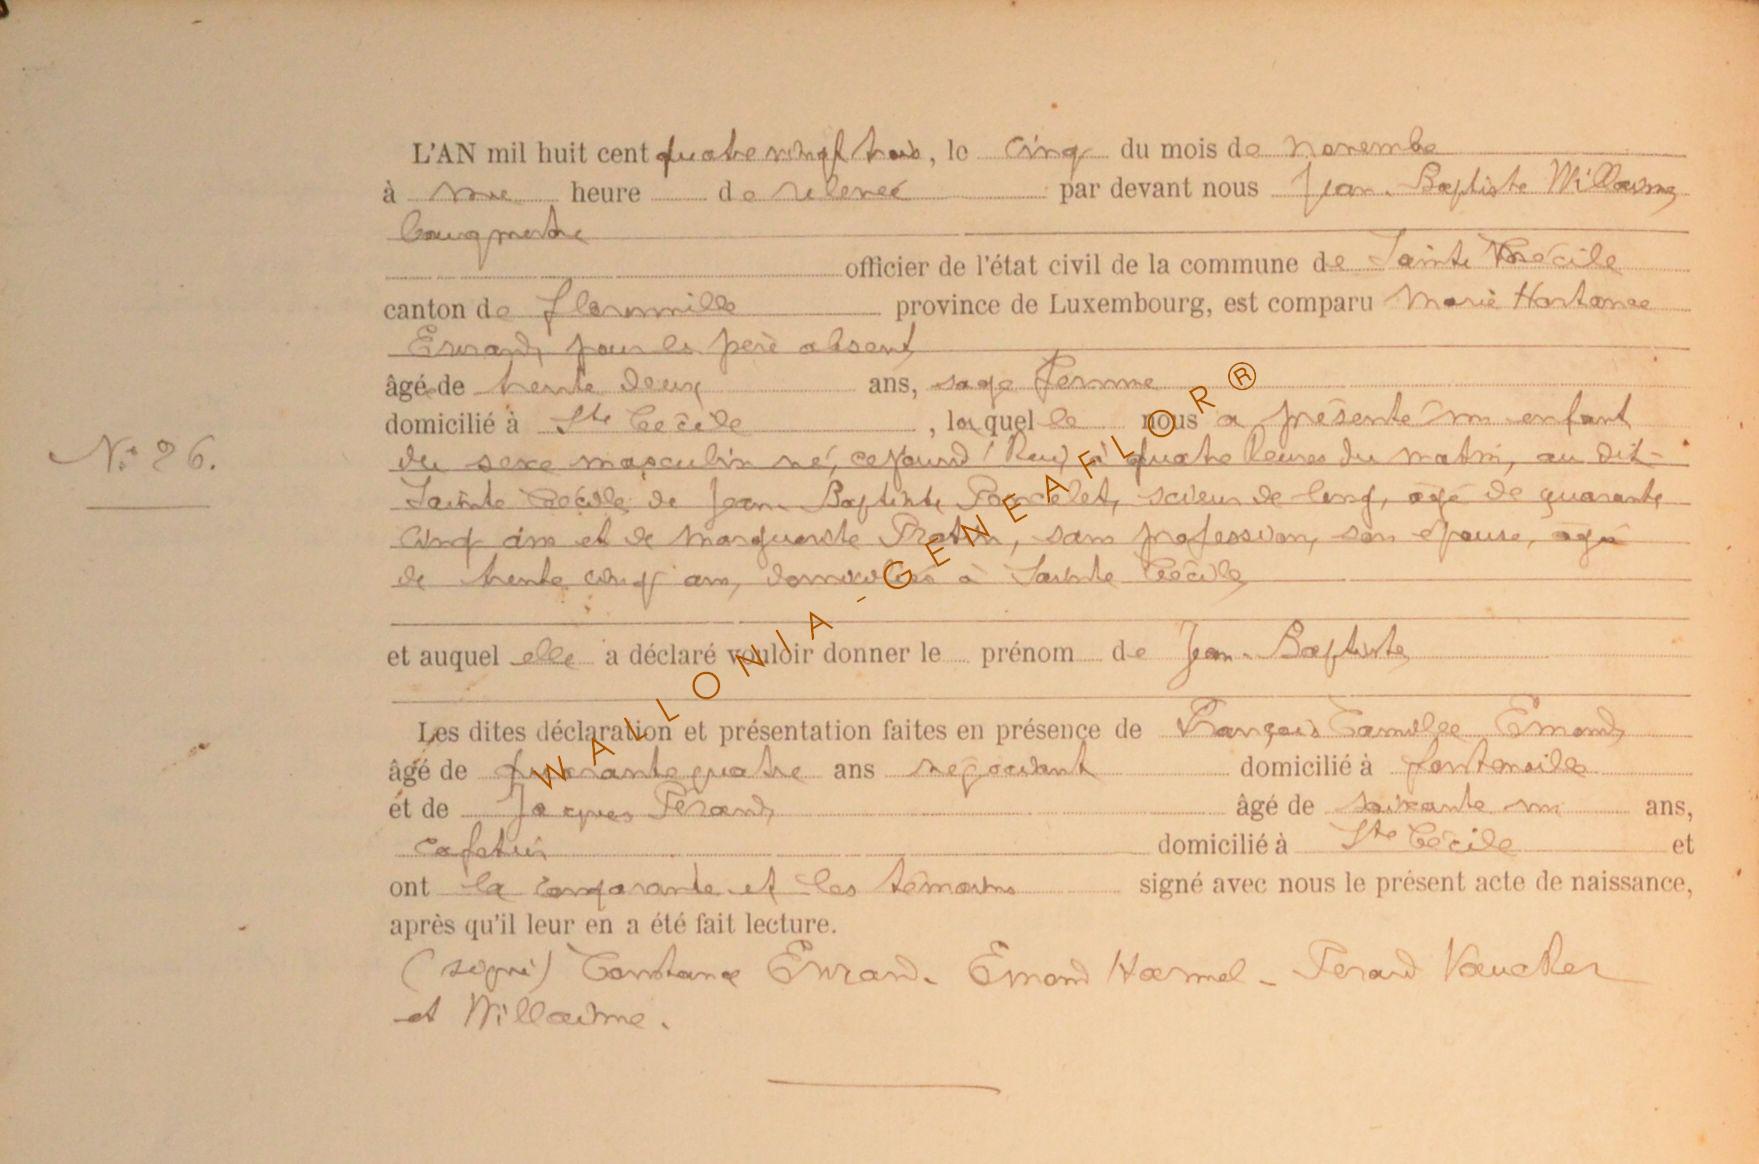 L'AN mil huit cent quatre vingt trois, le cinq du mois de novembre
à une heure de relevée par devant nous Jean-Baptiste Willaime
bourgmestre
officier de l'état civil de la commune de Sainte Cécile
canton de florenville province de Luxembourg, est comparu Marie Hortance
Evrard, pour le père absent
âgée de trente deux ans, sage femme
domicilié à Ste Cécile, laquelle nous a présenté un enfant
N° 26.
du sexe masculin né, cejourd'hui à quatre heures du matin, au dit
Sainte Cécile de Jean-Baptiste Poncelet, scieur de long, agé de quarante
cinq ans et de Marguerite Protin, sans profession, son épouse, agé
de trente cinq ans, domiciliés à Sainte Cécile
et auquel elle a déclaré vouloir donner le prénom de Jean-Baptiste
Les dites déclaration et présentation faites en présence de François Camille Emond
âgé de quarante quatre ans négociant domicilié à fontenoille
et de Jacques Ferand âgé de soixante un ans,
cafetier domicilié à Ste Cécile et
ont la comparante et les témoins signé avec nous le présent acte de naissance,
après qu'il leur en a été fait lecture.
(signé) Constance Evrard - Emond Harmel - Ferard Vaucher
et Willaime.
WALLONIA - GENEAFLOR®